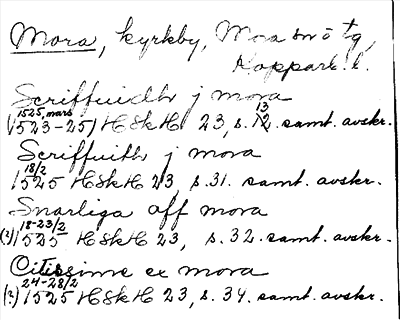 Mora, kyrkby, Mora sn o tg,
Kopparb. l.
Scriffuidh j mora
1525, mars 13
(1523-25) HSkH 23, s. 12. samt. avskr.
Scriffuith j mora
18/2
1525 HSkH 23, s. 31. samt. avskr.
Snarliga aff mora
18-23/2
(?) 1525 HSkH 23, s. 32. samt. avskr.
Citissime ex mora
24-28/2
(?) 1525 HSkH 23, s. 34. samt. avskr.